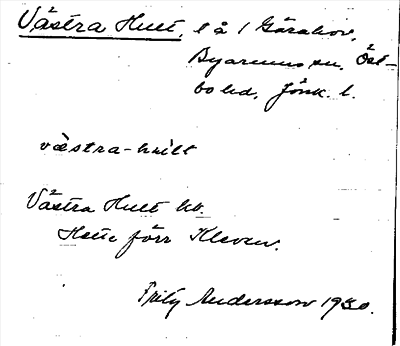 Västra Hult, l å 1 Gårahov,
Byarums sn. Öst-
bo hd, Jönk. l.
västra-hult
Västra Hult kb.
Hette förr Kleven.
Fritz Andersson 1930.